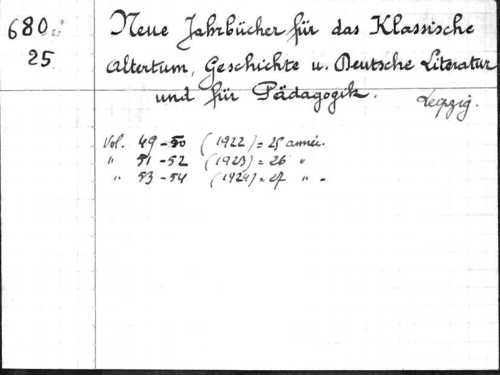 680
25.
Neue Jahrbücher für das Klassische
Altertum, Geschichte u. Deutsche Literatur
und für Pädagogik.
Leipzig.
Vol. 49-50 (1922) = 25 année.
" 51-52 (1923) = 26 "
" 53-54 (1924) = 27 " -